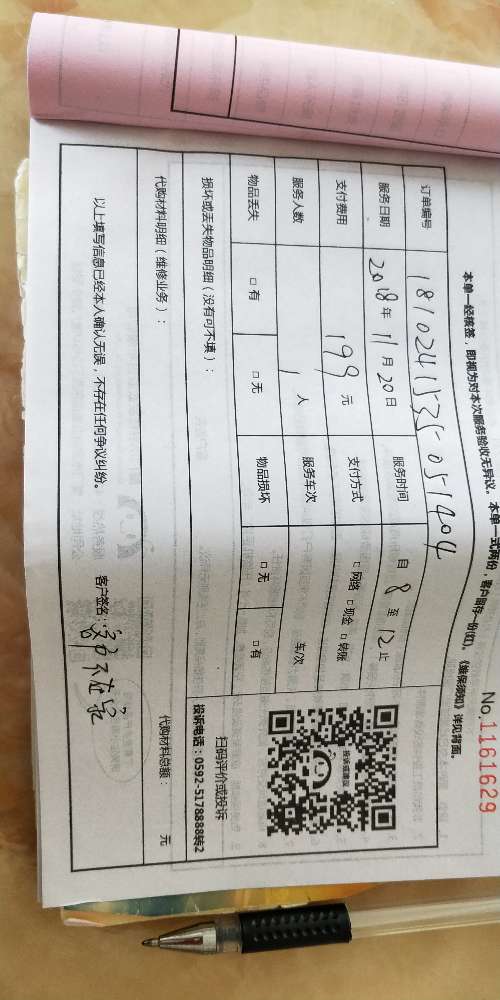 No.1161629
本单一经核签，即视为对本次服务验收无异议。本单一式两份，客户留存一份(红)。《维保须知》详见背面。
订单编号 181024153505 1404
服务日期 2018年11月20日 服务时间 自8至12止
支付费用 199元 支付方式 □网络 □现金 □转账
服务人数 1人 服务车次 车/次
物品丢失 □有 □无 物品损坏 □无 □有
损坏或丢失物品明细（没有可不填）：
投诉或建议
扫码评价或投诉
投诉电话：0592-5178888转2
代购材料明细（维修业务）：
代购材料总额： 元
以上填写信息已经本人确认无误，不存在任何争议纠纷。 客户签名：客户不在家